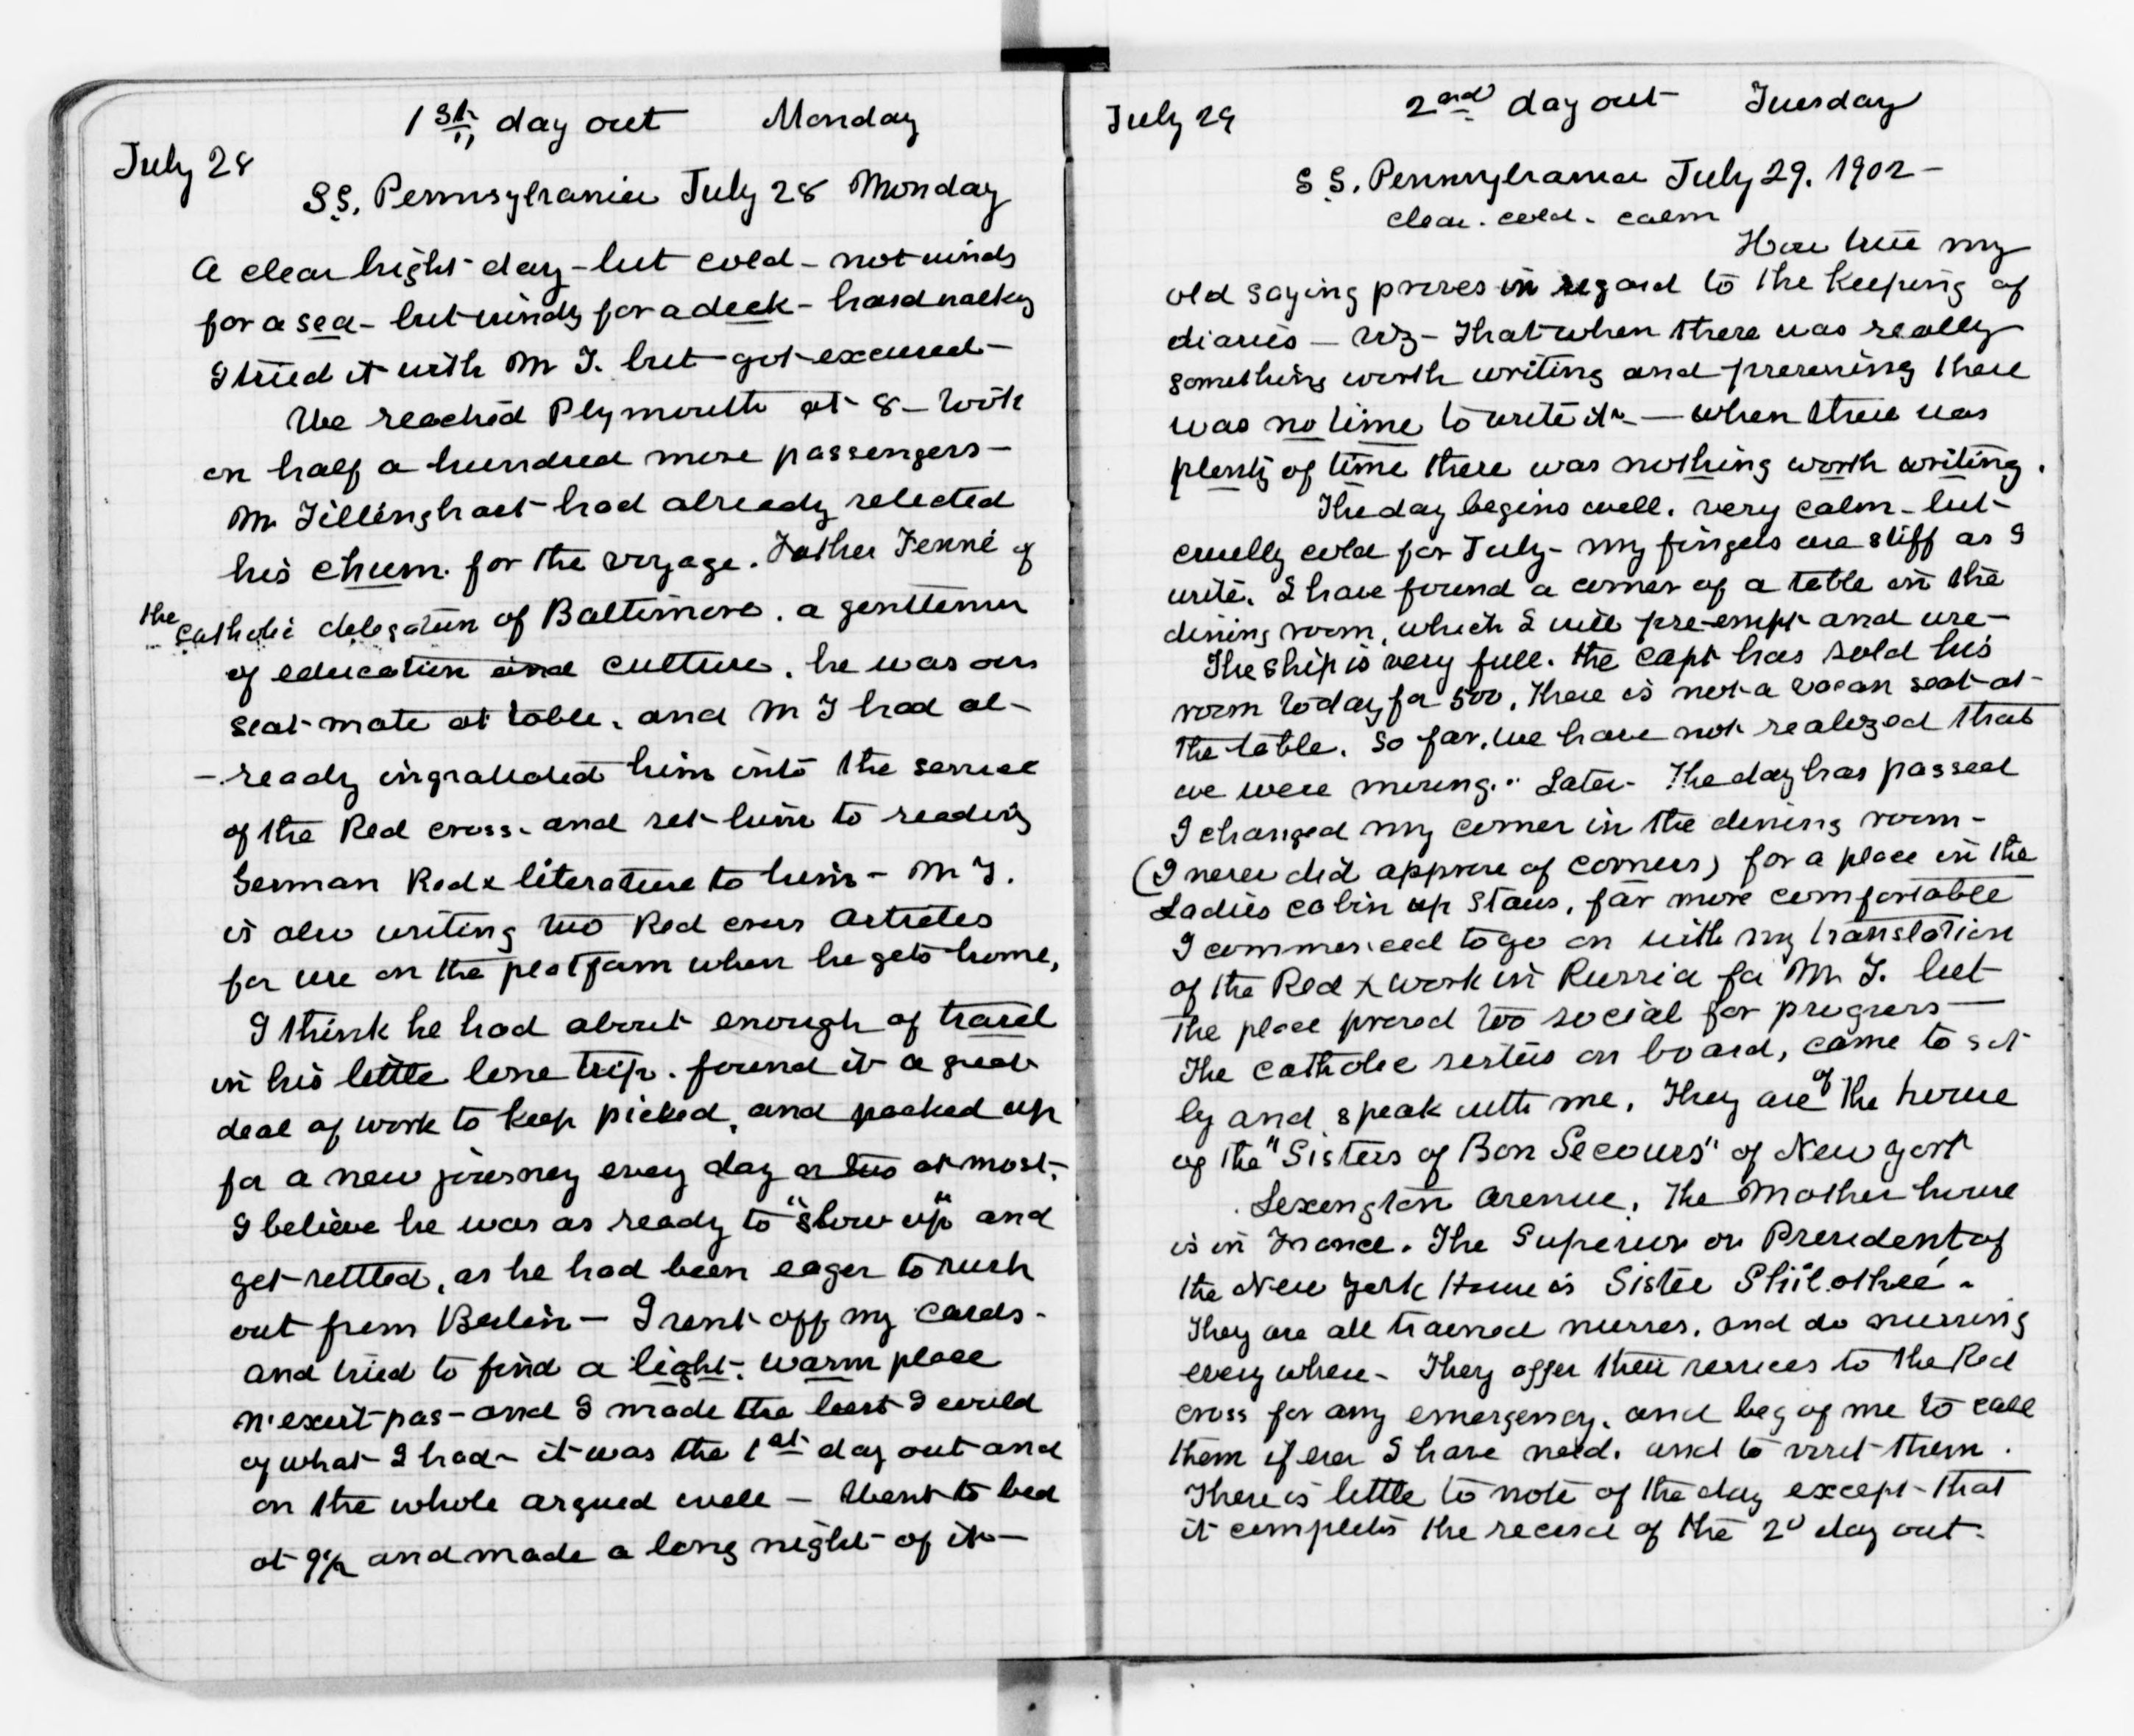 1st day out Monday
July 28
SS. Pennsylvania July 28 Monday
A clear bright day - but cold - not windy
for a sea - but windy for a deck - hard walking
I tried it with Mr T. but got excused -
We reached Plymouth at 8 - took
on half a hundred more passengers -
Mr Tillinghast had already selected
his chum. for the voyage. Father Fenné of
the Catholic delegation of Baltimore. a gentleman
of education and culture. he was our
seat mate at table. and Mr T had al-
- ready ingratiated him into the service
of the Red cross. and set him to reading
German Red x literature to him - Mr T.
is also writing two Red cross articles
for use on the platform when he gets home,
I think he had about enough of travel
in his little lone trip. found it a great
deal of work to keep picked, and packed up
for a new journey every day or two at most.
I believe he was as ready to "slow up" and
get settled, as he had been eager to rush
out from Berlin - I sent off my cards -
and tried to find a light. warm place
n'exist pas - and I made the best I could
of what I had - it was the 1st day out and
on the whole argued well - Went to bed
at 9½ and made a long night of it -
July 29
2nd day out Tuesday
S S. Pennsylvania July 29. 1902 -
clear. cold. calm
How true my
old saying proves in regard to the keeping of
diaries - viz - That when there was really
something worth writing and preserving there
was no time to write it - when there was
plenty of time there was nothing worth writing.
The day begins well. very calm - but
cruelly cold for July - my fingers are stiff as I
write. I have found a corner of a table in the
dining room, which I will pre-empt and use -
The ship is very full. the capt has sold his
room today for 500. There is not a vacan seat at
the table. So far, we have not realized that
we were moving. Later - The day has passed
I changed my corner in the dining room -
(I never did approve of corners) for a place in the
Ladies cabin up stairs, far more comfortable
I commenced to go on with my translation
of the Red x work in Russia for Mr T. but
the place proved too social for progress -
The catholic sisters on board, came to sit
by and speak with me. They are of the house
of the "Sisters of Bon Secours" of New York
Lexington Avenue. The Mother house
is in France. The Superior or President of
the New York House is Sister
They are all trained nurses, and do nursing
every where - They offer their services to the Red
cross for any emergency. and beg of me to call
them if ever I have need. and to visit them.
There is little to note of the day except that
it completes the record of the 2d day out.